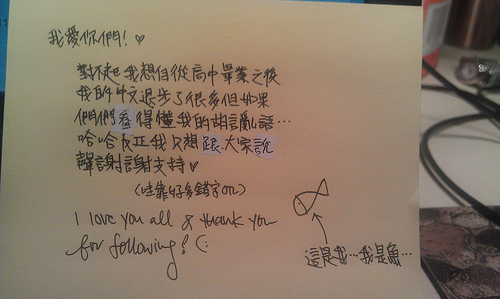 我愛你們! ♡
對不起我想自從高中畢業之後
我的中文退步了很多但如果
們們看得懂我的胡語亂語…
哈哈反正我只想跟大家說
聲謝謝支持♡
(哇靠好多錯字orz)
I love you all & thank you
for following! (:
這是我…我是魚…